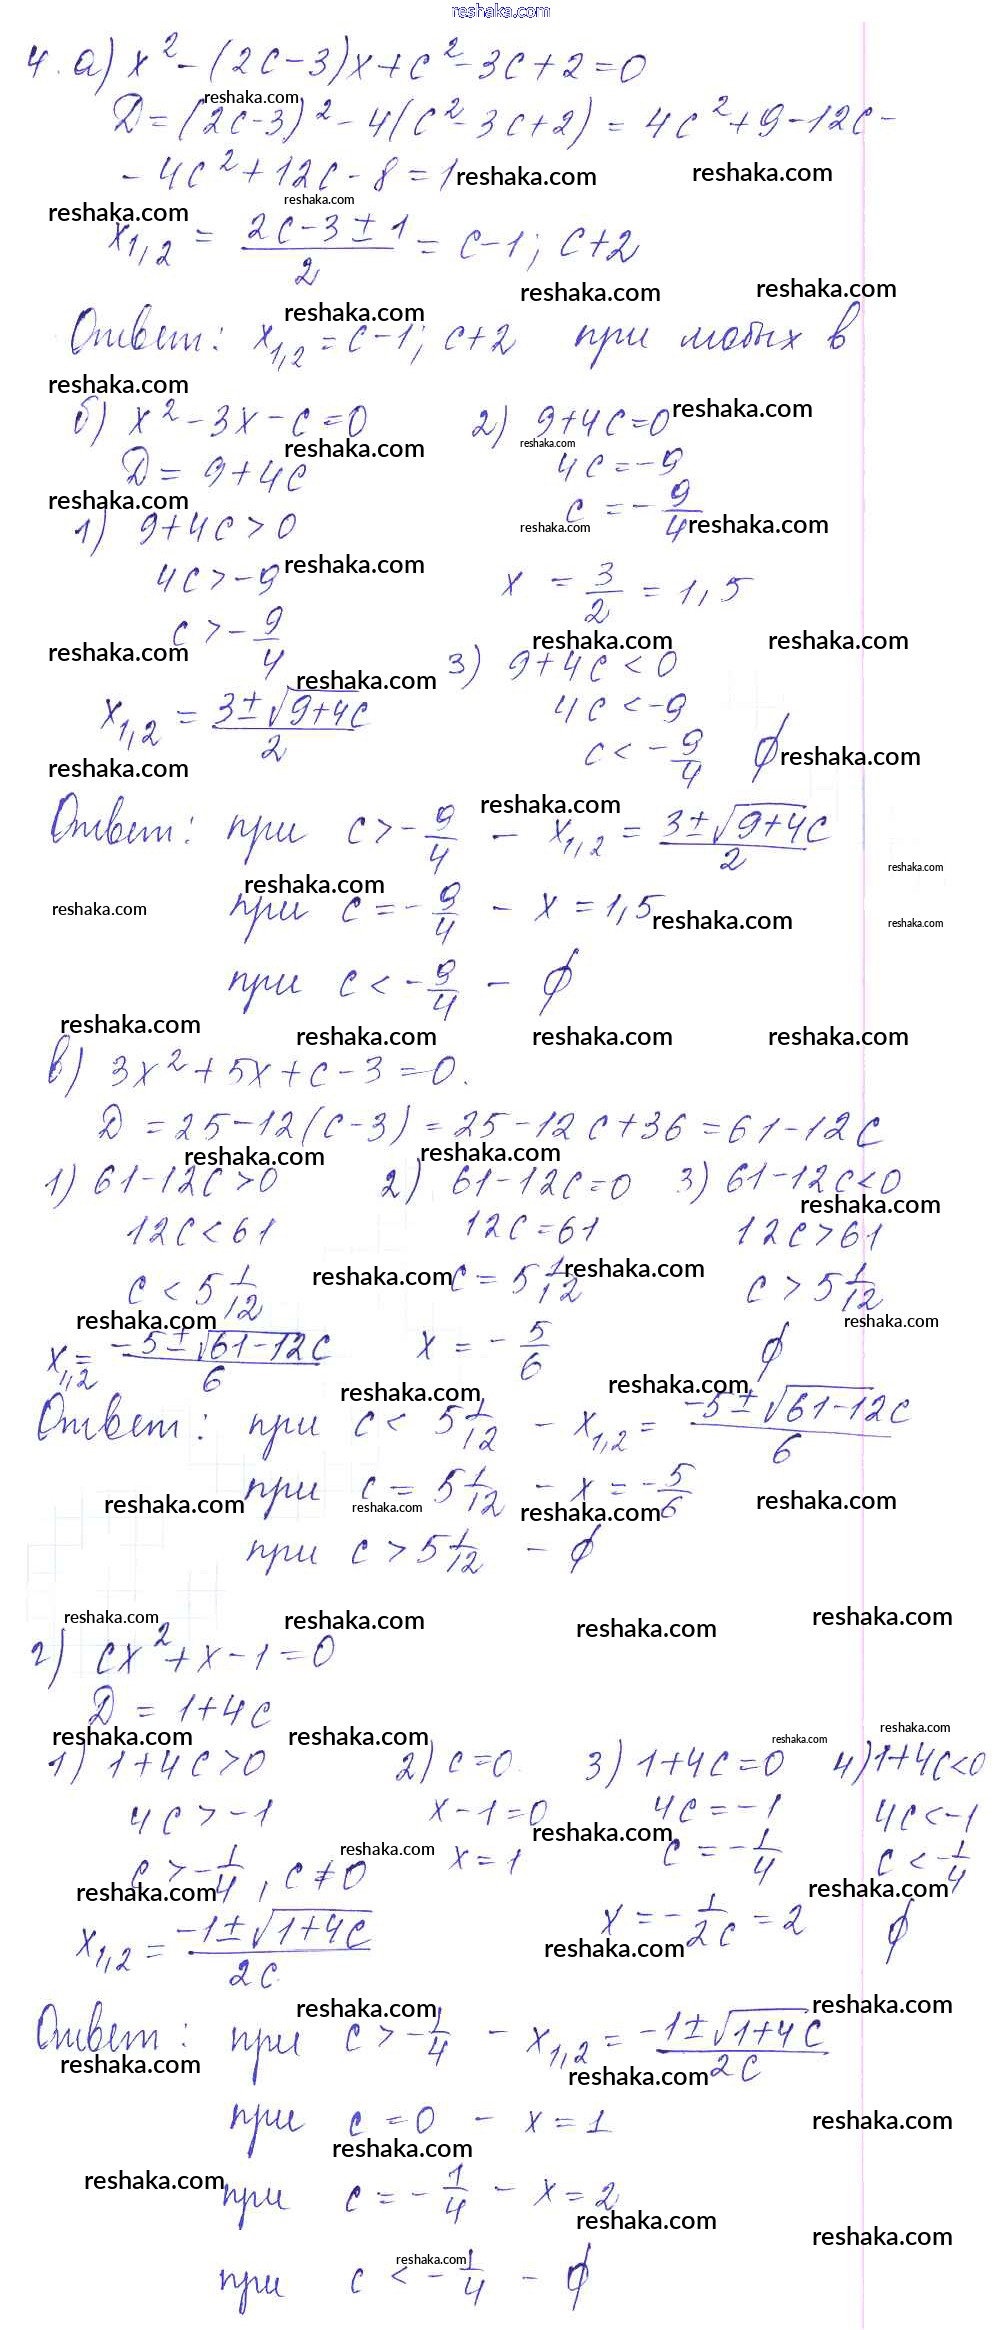 reshaka.com
4. а) x² - (2c - 3)x + c² - 3c + 2 = 0
D = (2c - 3)² - 4(c² - 3c + 2) = 4c² + 9 - 12c -
- 4c² + 12c - 8 = 1
x₁,₂ = (2c - 3 ± 1)/2 = c - 1; c + 2
Ответ: x₁,₂ = c - 1; c + 2 при любых в
б) x² - 3x - c = 0
D = 9 + 4c
1) 9 + 4c > 0
4c > -9
c > -9/4
x₁,₂ = (3 ± √(9 + 4c))/2
2) 9 + 4c = 0
4c = -9
c = -9/4
x = 3/2 = 1,5
3) 9 + 4c < 0
4c < -9
c < -9/4 ∅
Ответ: при c > -9/4 - x₁,₂ = (3 ± √(9 + 4c))/2
при c = -9/4 - x = 1,5
при c < -9/4 - ∅
в) 3x² + 5x + c - 3 = 0.
D = 25 - 12(c - 3) = 25 - 12c + 36 = 61 - 12c
1) 61 - 12c > 0 2) 61 - 12c = 0 3) 61 - 12c < 0
12c < 61 12c = 61 12c > 61
c < 5 1/12 c = 5 1/12 c > 5 1/12
x₁,₂ = (-5 ± √(61 - 12c))/6 x = -5/6 ∅
Ответ: при c < 5 1/12 - x₁,₂ = (-5 ± √(61 - 12c))/6
при c = 5 1/12 - x = -5/6
при c > 5 1/12 - ∅
г) cx² + x - 1 = 0
D = 1 + 4c
1) 1 + 4c > 0 2) c = 0. 3) 1 + 4c = 0 4) 1 + 4c < 0
4c > -1 x - 1 = 0 4c = -1 4c < -1
c > -1/4, c ≠ 0 x = 1 c = -1/4 c < -1/4
x₁,₂ = (-1 ± √(1 + 4c))/2c x = -1/2c = 2 ∅
Ответ: при c > -1/4 - x₁,₂ = (-1 ± √(1 + 4c))/2c
при c = 0 - x = 1
при c = -1/4 - x = 2
при c < -1/4 - ∅